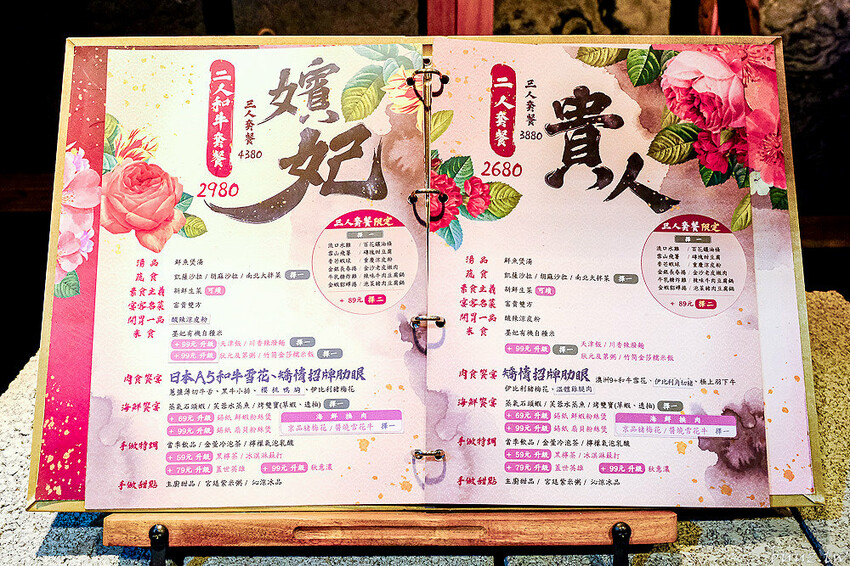 嬪妃
二人和牛套餐
2980
三人套餐
4380
三人套餐限定
擇一
+ 89元 擇二
湯品 鮮魚煲湯
蔬食 凱薩沙拉 / 胡麻沙拉 / 南北大拌菜 擇一
素食主義 朝鮮生菜 可續
宴客名菜 富貴雙方
開胃一品 酸辣涼皮粉
米食 墨妃有機自種米
+ 99元 升級 天津飯 / 川香辣撈麵 擇一
狀元及第粥 / 竹筒金莎糙米飯
肉食饗宴 日本A5和牛雪花、矯情招牌肋眼
蔥鹽薄切牛舌、黑牛小排、櫻桃鴨胸、伊比利豬梅花
海鮮饗宴 蒸氣石頭蝦 / 芙蓉水蒸魚 / 烤雙寶(草蝦、透抽) 擇一
+ 69元 升級 錫紙 鮮蝦粉絲煲
+ 99元 升級 錫紙 扇貝粉絲煲
海鮮換肉
京品豬梅花 / 醬燒雪花牛 擇一
手做特調 當季飲品 / 金萱冷泡茶 / 檸檬氣泡乳酸
+ 59元 升級 黑檸茶 / 冰淇淋蘇打
+ 79元 升級 蓋世英雄 + 99元 升級 秋意濃
手做甜點 主廚甜品 / 宮廷紫米粥 / 沁涼冰品
貴人
二人套餐
2680
三人套餐
3880
三人套餐限定
擇一
+ 89元 擇二
湯品 鮮魚煲湯
蔬食 凱薩沙拉 / 胡麻沙拉 / 南北大拌菜 擇一
素食主義 朝鮮生菜 可續
宴客名菜 富貴雙方
開胃一品 酸辣涼皮粉
米食 墨妃有機自種米
+ 99元 升級 擇一 天津飯 / 川香辣撈麵
狀元及第粥 / 竹筒金莎糙米飯
肉食饗宴 矯情招牌肋眼、澳洲9+和牛雪花、伊比利肉、極上羽下牛
伊比利豬梅花、溫體雞腿肉
海鮮饗宴 蒸氣石頭蝦 / 芙蓉水蒸魚 / 烤雙寶(草蝦、透抽) 擇一
+ 69元 升級 錫紙 鮮蝦粉絲煲
+ 99元 升級 錫紙 扇貝粉絲煲
海鮮換肉
京品豬梅花 / 醬燒雪花牛 擇一
手做特調 當季飲品 / 金萱冷泡茶 / 檸檬氣泡乳酸
+ 59元 升級 黑檸茶 / 冰淇淋蘇打
+ 79元 升級 蓋世英雄 + 99元 升級 秋意濃
手做甜點 主廚甜品 / 宮廷紫米粥 / 沁涼冰品